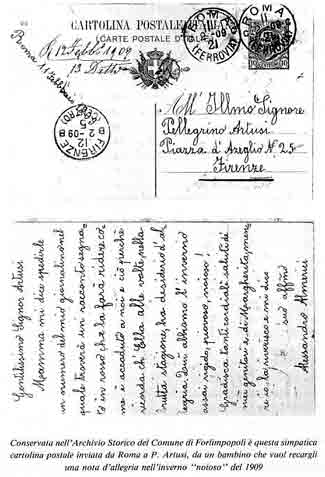 CARTOLINA POSTALE
(CARTE POSTALE D'ITALIE)
ROMA
(FERROVIA)
21
ROMA
(FERROVIA)
Roma 11 Febbraio
R 12 Febb° 1909
13 Detto
FIRENZE
12
2-09
All' Illmo Signore
Pellegrino Artusi
Piazza d'Azeglio N° 25
Firenze
Gentilissimo Signor Artusi
Mamma mi dice spedirle
un numero del mio giornalino nel
quale troverà un racconto segna
to in rosso che la farà ridere co
me è accaduto a noi e ciò perché
ricorda ch'Ella alle volte nella
brutta stagione, ha desiderio d'al
legria. Qui abbiamo l'inverno
assai rigido, piovoso, noioso!
Gradisca tanti cordiali saluti de'
miei genitori e di Margherita, men
re io la riverisco e mi dico
suo affmo
Alessandro Almerici
Conservata nell'Archivio Storico del Comune di Forlimpopoli è questa simpatica
cartolina postale inviata da Roma a P. Artusi, da un bambino che vuol recargli
una nota d'allegria nell'inverno "noioso" del 1909